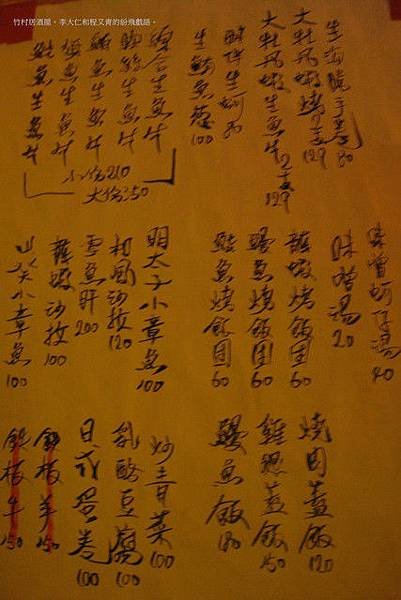 竹村居酒屋。李大仁和程又青的紛飛戲語。
生海膽手卷80
大牡丹蝦燒2支129
大牡丹蝦生魚片2支129
生蚵
生魚蔥100
綜合生魚片
生魚片
生魚片
生魚片
鮭魚生魚片
小份210
大份350
味噌蚵仔湯40
味噌湯20
龍蝦烤飯團60
鰻魚烤飯團60
鮭魚烤飯團60
明太子小章魚100
和風沙拉120
雪魚肝200
龍蝦沙拉100
山葵小章魚100
燒肉蓋飯120
雞腿蓋飯150
鰻魚飯180
炒青菜100
乳酪豆腐100
日式蛋卷100
鐵板羊150
鐵板牛150